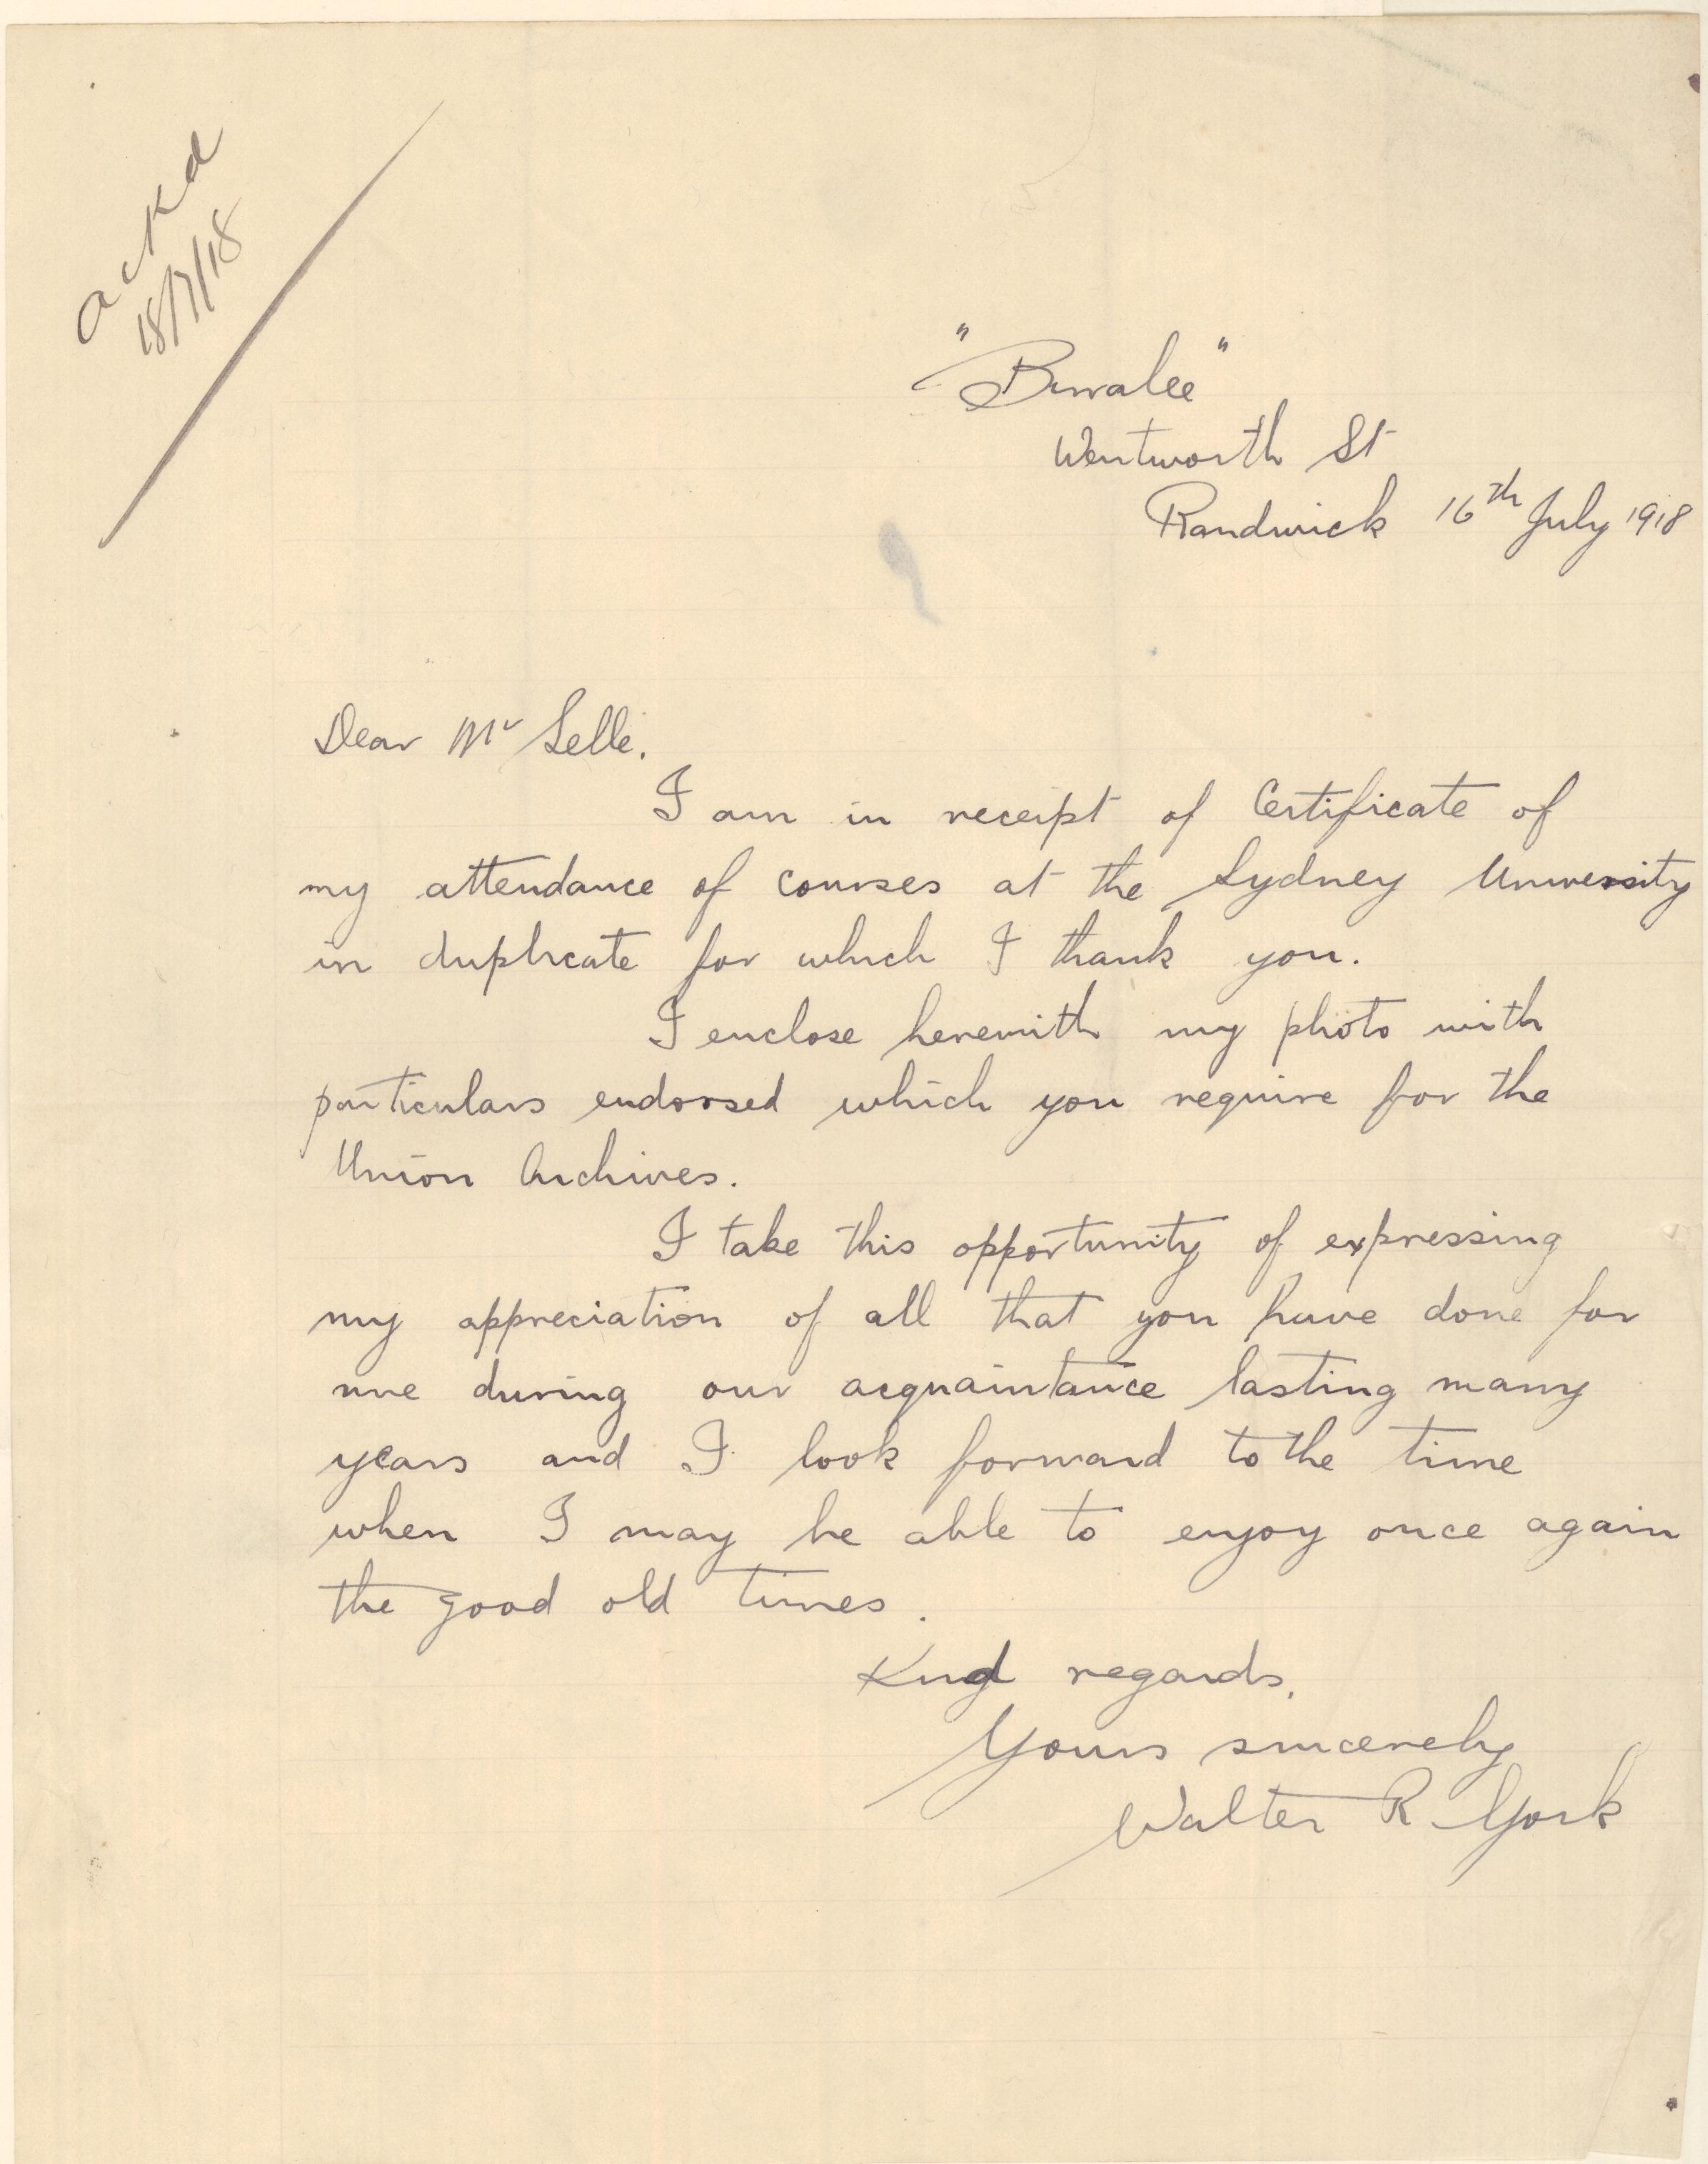 ackd
18/7/18
"Birralee"
Wentworth St
Randwick 16th July 1918
Dear Mr Selle.
I am in receipt of Certificate of
my attendance of courses at the Sydney University
in duplicate for which I thank you.
I enclose herewith my photo with
particulars endorsed which you require for the
Union Archives.
I take this opportunity of expressing
my appreciation of all that you have done for
me during our acquaintance lasting many
years and I look forward to the time
when I may be able to enjoy once again
the good old times.
Kind regards.
Yours sincerely
Walter R York